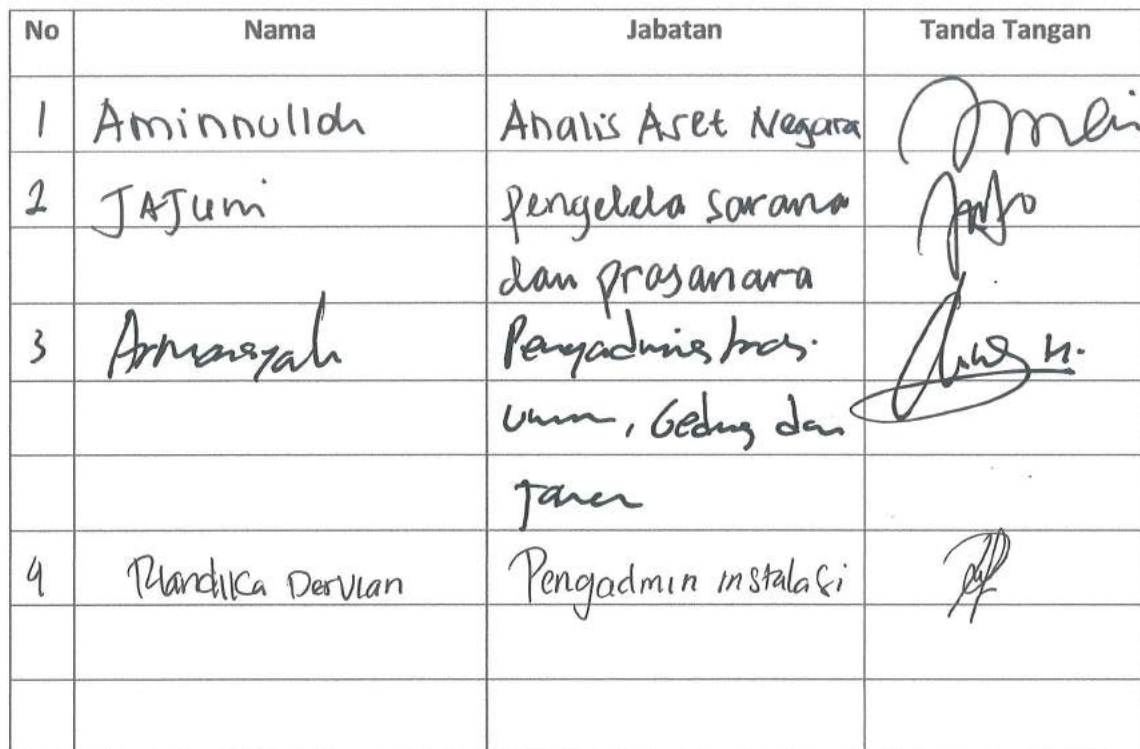 No Nama Jabatan Tanda Tangan
1 Aminnulloh Analis Aset Negara
2 JAJuni Pengelola sarana
dan prasanara
3 Armansyah Pengadministrasi
Umum, Gedung dan
Taman
4 Riandika Dervian Pengadmin instalasi